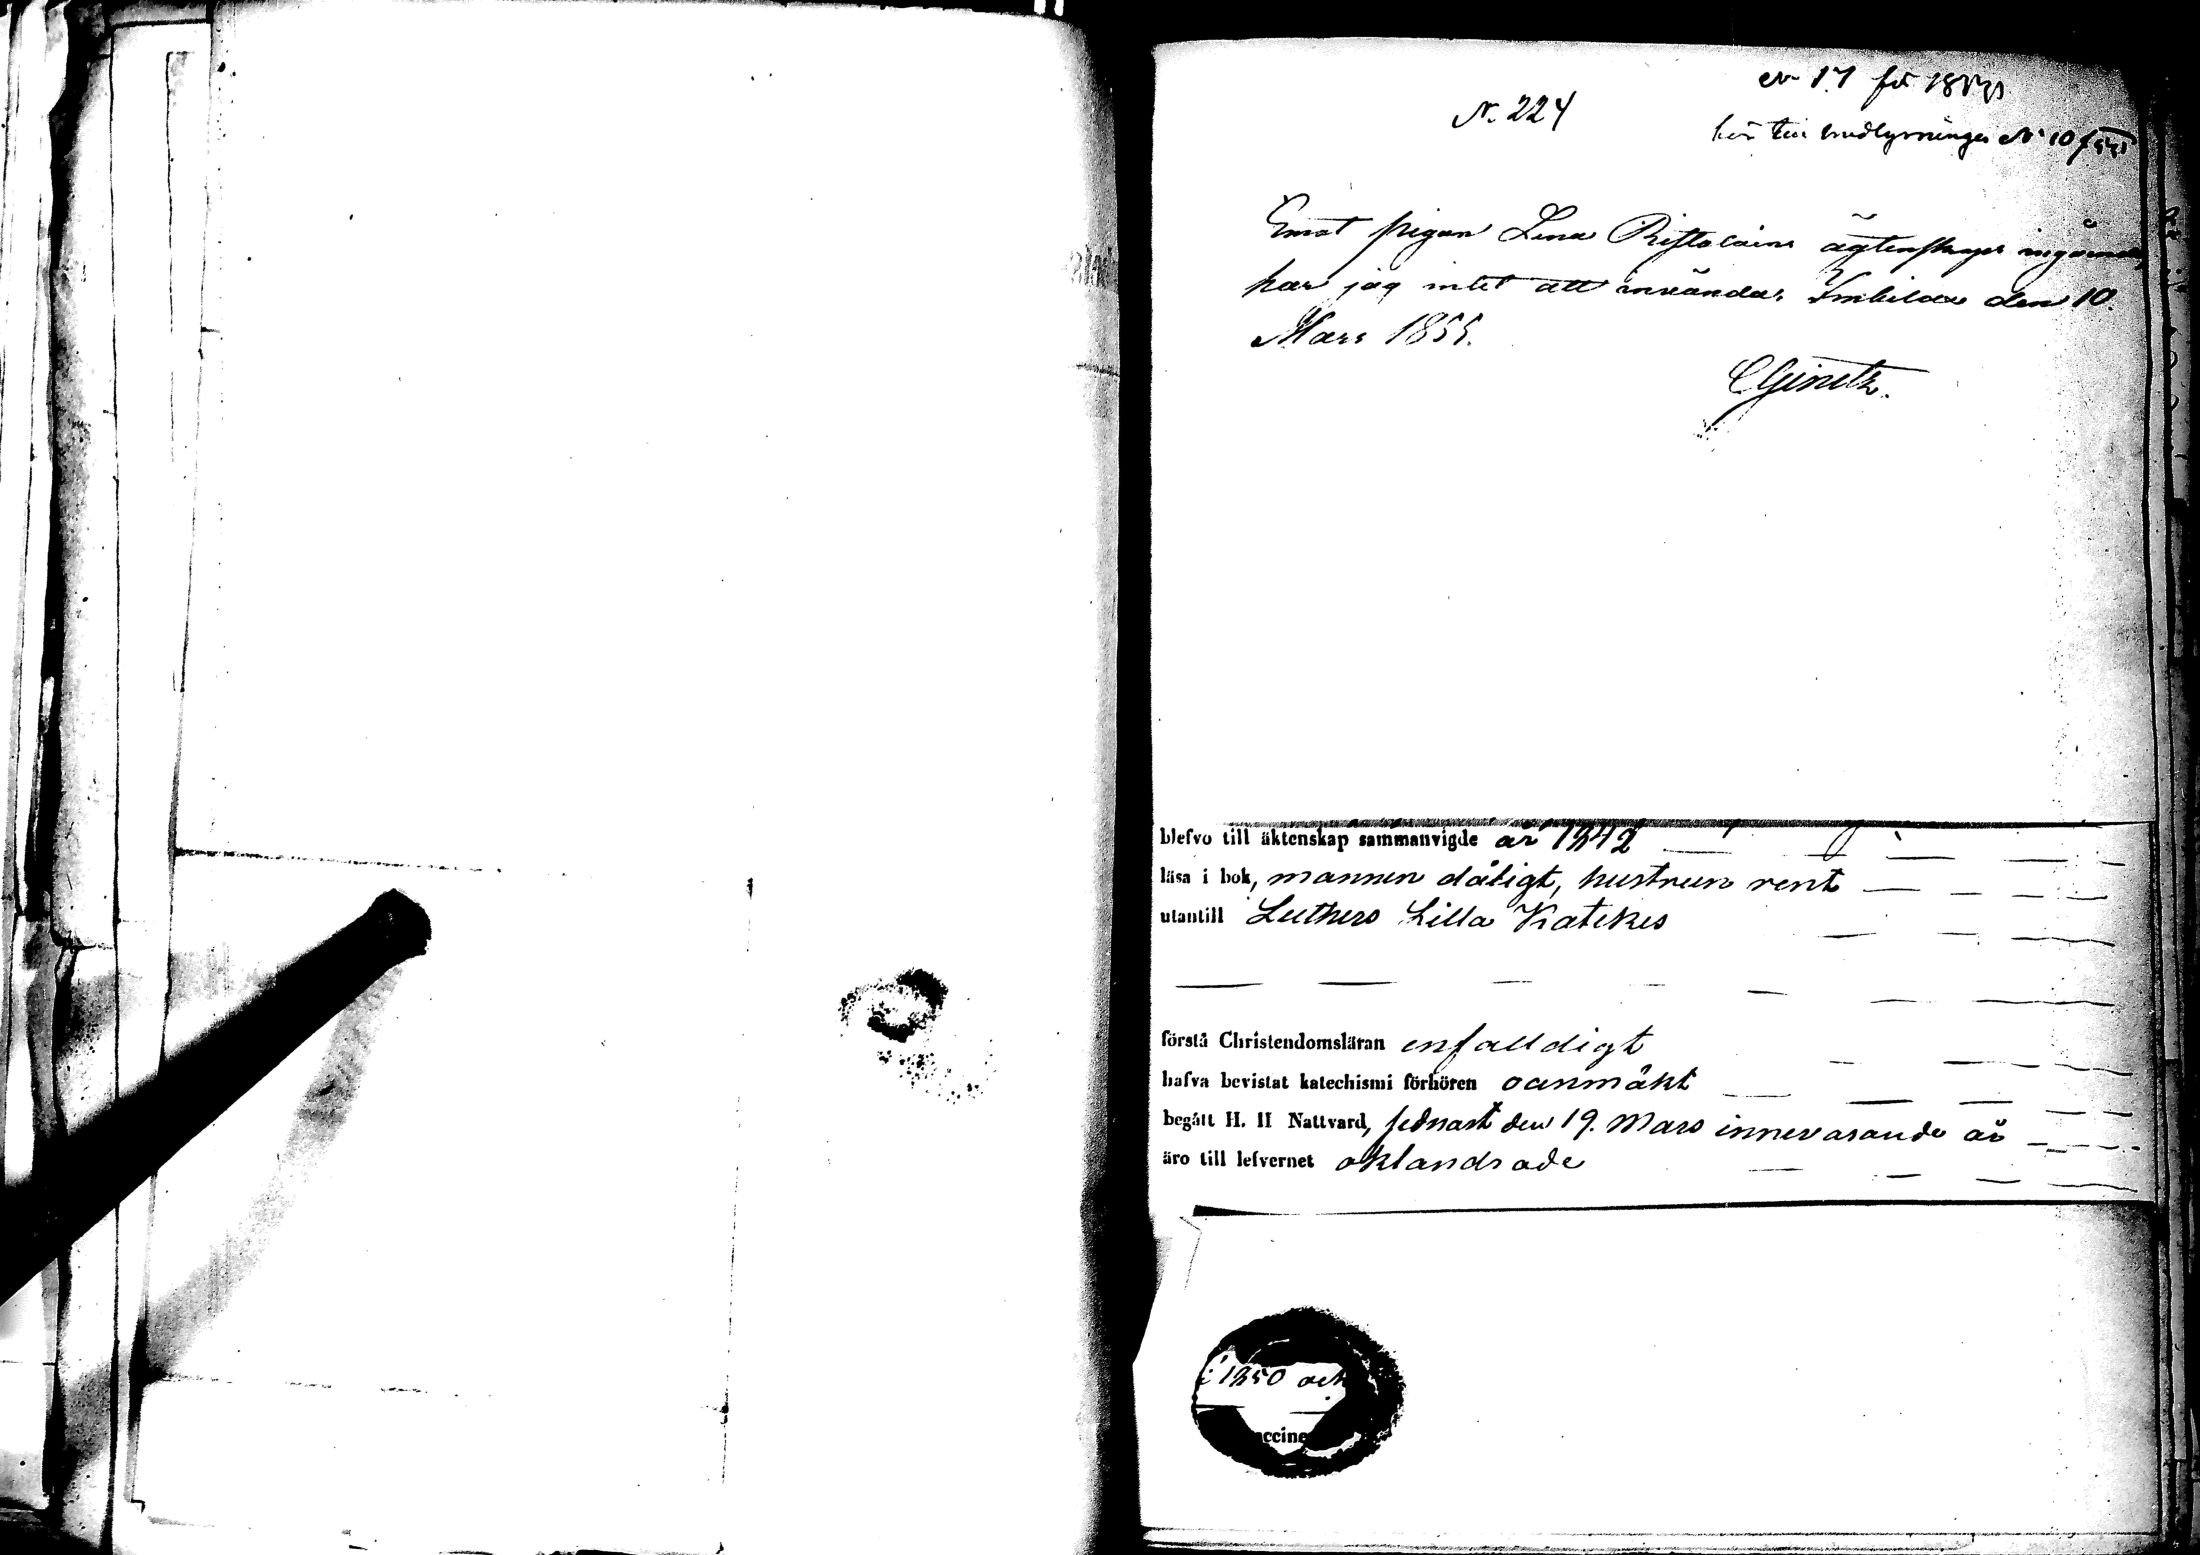 N. 224
N 17 för 1855
hör till vudlysningen N 10 1855
Emot pigan Lena Ristolains ägtenskaps ingående,
har jag intet att invända. Imbilax den 10.
Mars 1855.
blefvo till äktenskap sammanvigde år 1842
läsa i bok, mannen dåligt, hustrun rent
utantill Luthers Lilla Katekes
förstå Christendomsläran enfalldigt
hafva bevistat katechismi förhören oanmäkt
begått H. H Nattvard, sednast den 19. Mars innevarande år
äro till lefvernet oklandrade
1850 och
accine